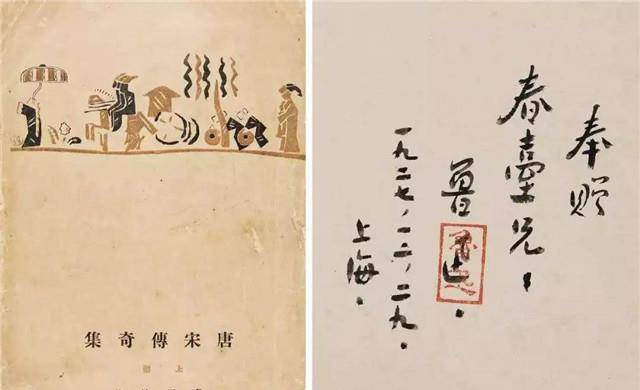 唐宋傳奇集
上冊
奉贈
春臺兄：
魯迅.
一九二七、一二、二九.
上海.